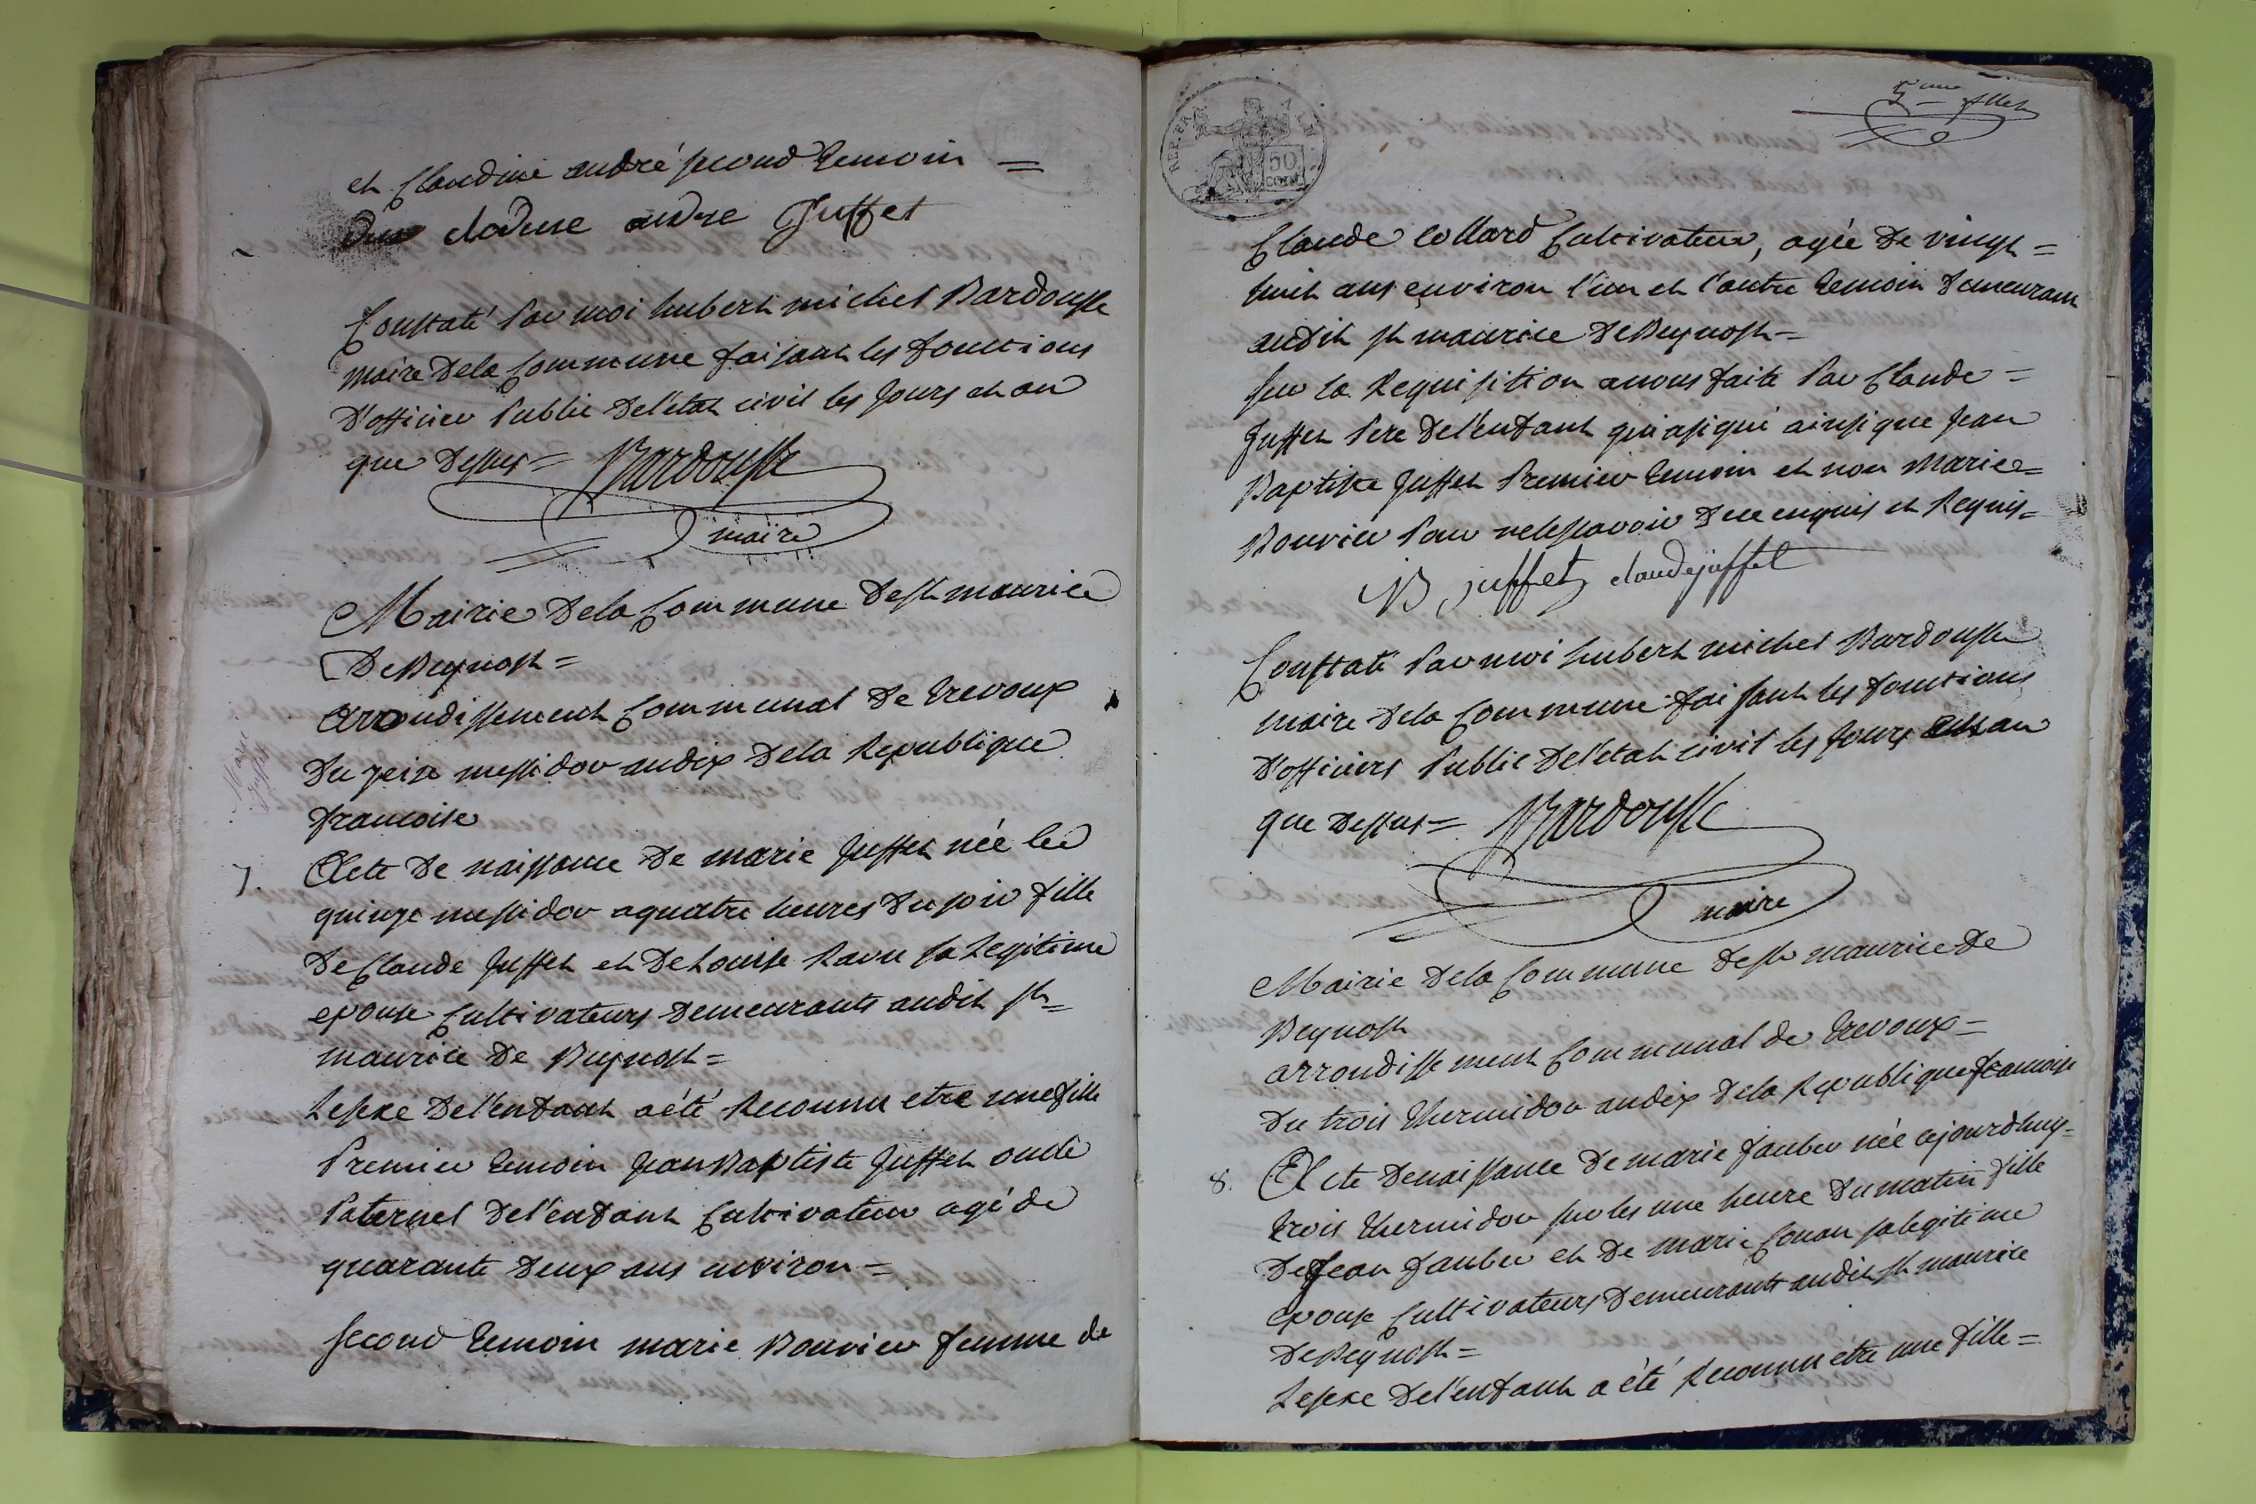 et Claudine andré second temoin =
claudine andre Juffet
Constaté Par moi hubert michel Bardousse
maire dela Commune faisant les fonctions
D'officier Public del'état civil les jours et an
que dessus = Bardousse
maire
Mairie dela Commune dest maurice
De Beynost =
arrondissement Communal de trevoux
Du seize messidor andix dela Republique
francoise
Marie
juffet
7. Acte de naissance de marie Juffet née le
quinze messidor aquatre heures du soir fille
de Claude Juffet et de Louise Ravu sa Legitime
epouse Cultivateurs demeurants audit st =
maurice de Beynost =
Lesexe del'enfant aété Reconnu etre unefille
Premier temoin Jean Baptiste Juffet oncle
Paternel del'enfant Cultivateur agé de
quarante deux ans environ =
second temoin marie Bouvier femme de
5eme fllet
REP. FRA
50
cent
Claude Collard Cultivateur, agée de vingt =
huit ans environ l'un et l'autre temoin demeurant
audit st maurice de Beynost =
sur la Requisition anous faite Par Claude =
Juffet Pere del'enfant qui asigné ainsi que Jean
Baptiste Juffet Premier temoin et non Marie =
Bouvier Pour nelesavoir dece enquis et Requis =
JB juffet claude juffet
Constaté Par moi hubert michel Bardousse
maire dela Commune faisant les fonctions
D'officiers Public del'état civil les jours et an
que dessus = Bardousse
maire
Mairie dela Commune dest maurice de
Beynost
arrondissement Communal de trevoux =
Du trois thermidor andix dela Republique francoise
8. Acte denaissance de marie faubu née cejourdhuy =
trois thermidor sur les une heure dumatin fille
De Jean faubu et de marie Conan salegitime
epouse Cultivateurs demeurants audit st maurice
de Beynost =
Lesexe del'enfant a été Reconnu etre une fille =